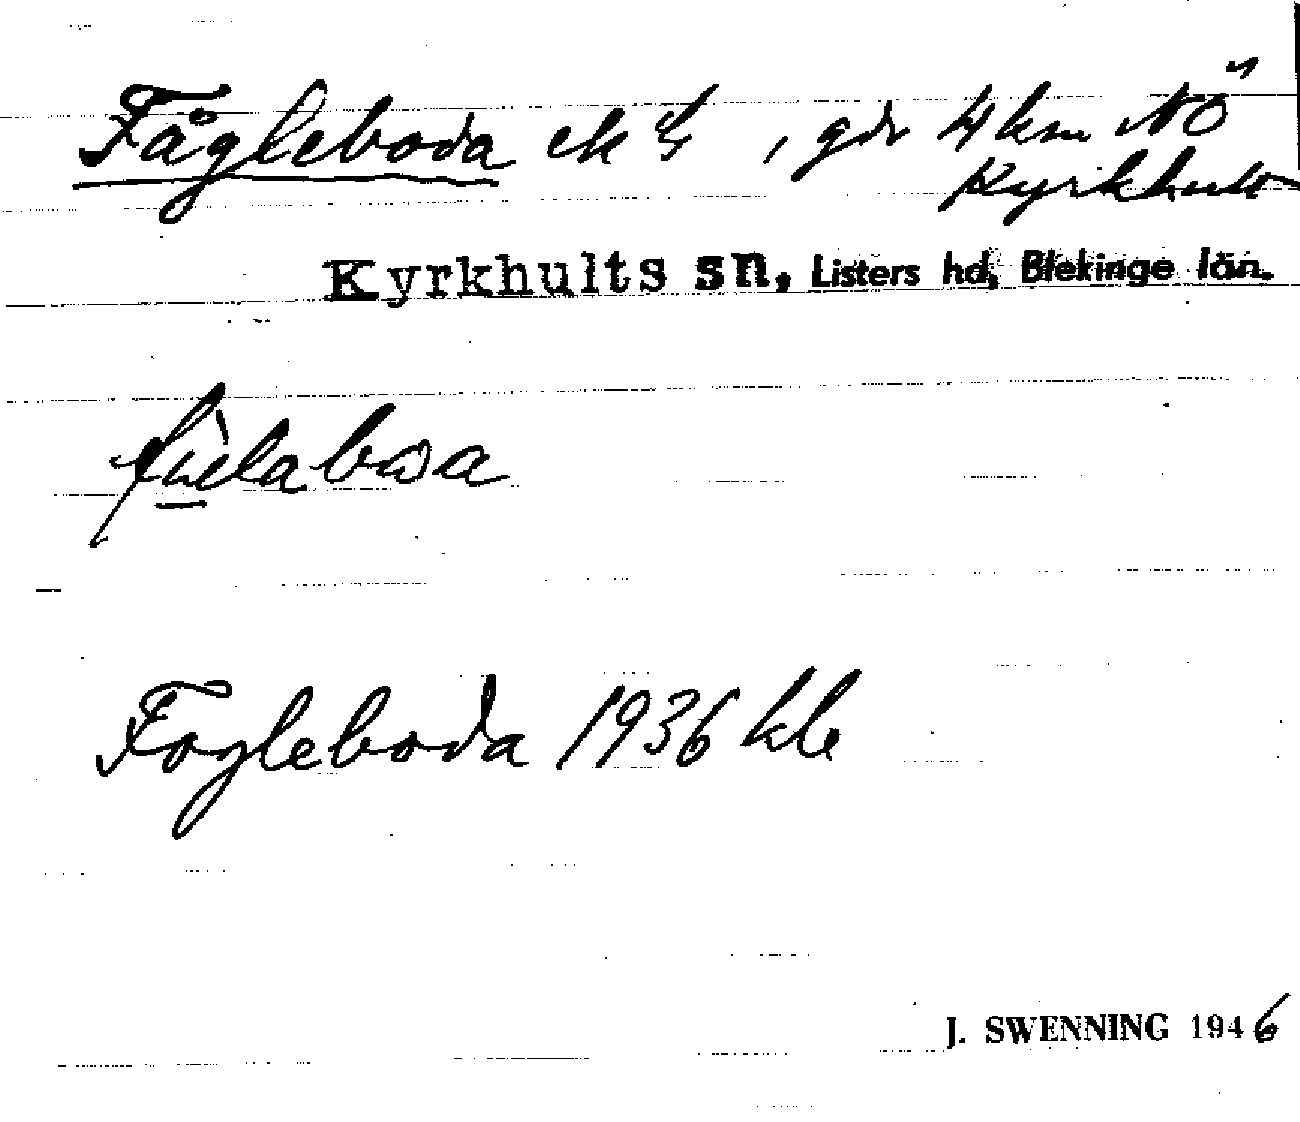 Fågleboda ek , gdr 4 km NÖ
Kyrkhult
Kyrkhults sn, Listers hd, Blekinge län.
Fogleboda 1936 kle
J. SWENNING 1946